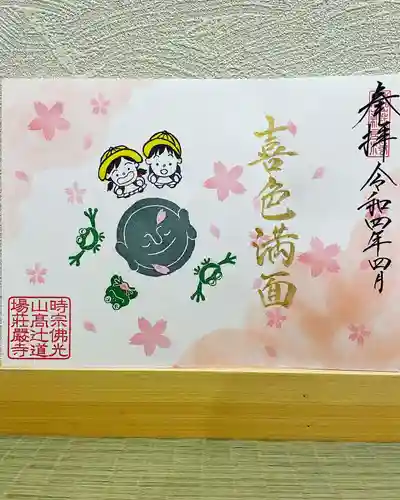 奉拝
令和四年四月
喜色満面
時宗佛光
山高辻道
場荘嚴寺